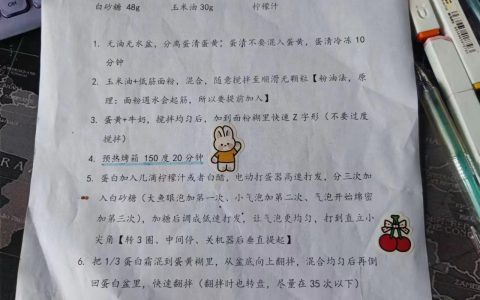 白砂糖 48g 玉米油30g 柠檬汁
1. 无油无水盆，分离蛋清蛋黄；蛋清不要混入蛋黄，蛋清冷冻10
分钟
2. 玉米油+低筋面粉，混合，随意搅拌至顺滑无颗粒【粉油法，原
理：面粉遇水会起筋，所以要提前加入】
3. 蛋黄+牛奶，搅拌均匀后，加到面粉糊里快速Z字形（不要过度
搅拌）
4. 预热烤箱 150 度 20 分钟
5. 蛋白加入几滴柠檬汁或者白醋，电动打蛋器高速打发，分三次加
入白砂糖（大鱼眼泡加第一次、小气泡加第二次、气泡开始绵密
加第三次），加糖后调成低速打发，让气泡更均匀，打到直立小
尖角【转3圈、中间停、关机器后垂直提起】
6. 把 1/3 蛋白霜混到蛋黄糊里，从盆底向上翻拌，混合均匀后再倒
回蛋白盆里，快速翻拌（翻拌时也转盘，尽量在 35 次以下）